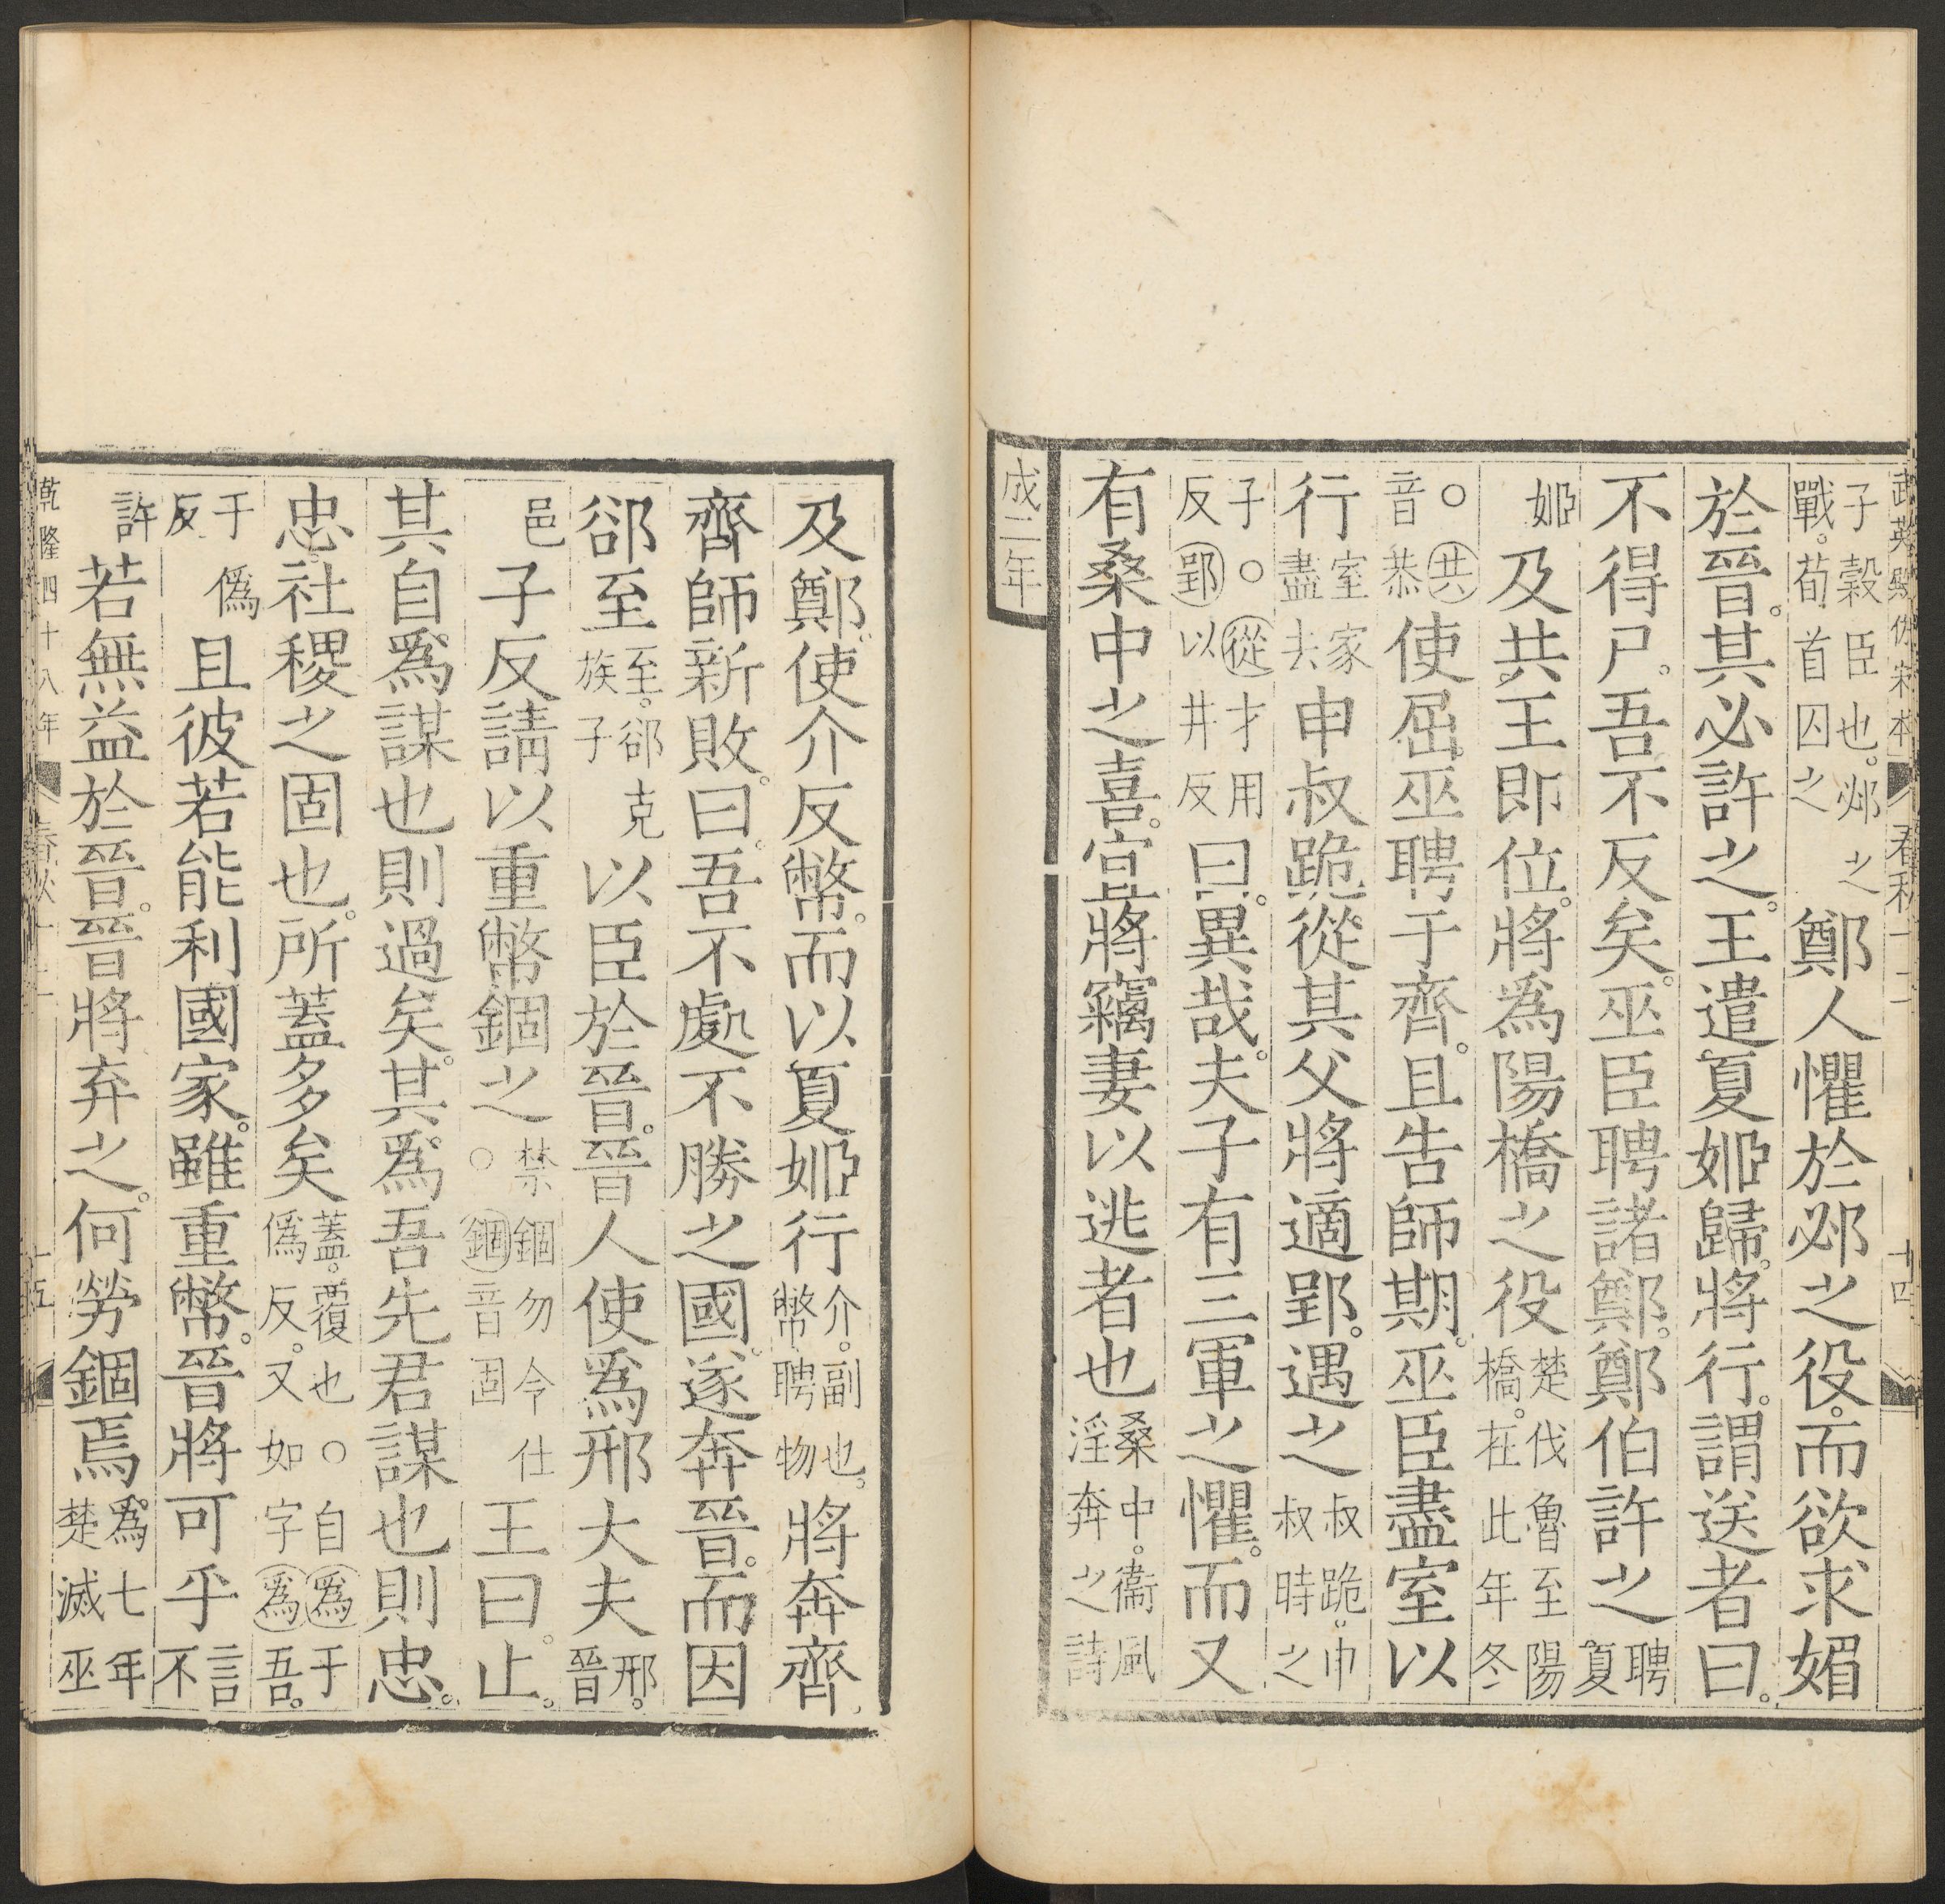 武英殿仿宋本
春秋十二
十四
子穀臣也。邲之
戰。荀首囚之
鄭人懼於邲之役。而欲求媚
於晉。其必許之。王遣夏姬歸。將行。謂送者曰。
不得尸。吾不反矣。巫臣聘諸鄭。鄭伯許之
聘
夏
姬
及共王即位。將爲陽橋之役
楚伐魯至陽
橋。在此年冬
○㊀共
音恭
使屈巫聘于齊。且告師期。巫臣盡室以
行
室家
盡去
申叔跪從其父將適郢。遇之
叔跪。申
叔時之
子○從才用
反郢以井反
曰。異哉。夫子有三軍之懼。而又
有桑中之喜。宜將竊妻以逃者也
桑中。衞風
淫奔之詩
成二年
及鄭。使介反幣。而以夏姬行
介。副也。
幣聘物
將奔齊。
齊師新敗。曰。吾不處不勝之國。遂奔晉。而因
郤至
至。郤克
族子
以臣於晉。晉人使爲邢大夫
邢。
晉
邑
子反請以重幣錮之
禁錮勿令仕
○錮音固
王曰。止。
其自爲謀也則過矣。其爲吾先君謀也則忠。
忠。社稷之固也。所蓋多矣
蓋。覆也○自爲于
僞反。又如字爲吾。
于僞
反
且彼若能利國家。雖重幣。晉將可乎
言
不
許
若無益於晉。晉將弃之。何勞錮焉
爲七年
楚滅巫
乾隆四十八年
春秋十二
十五